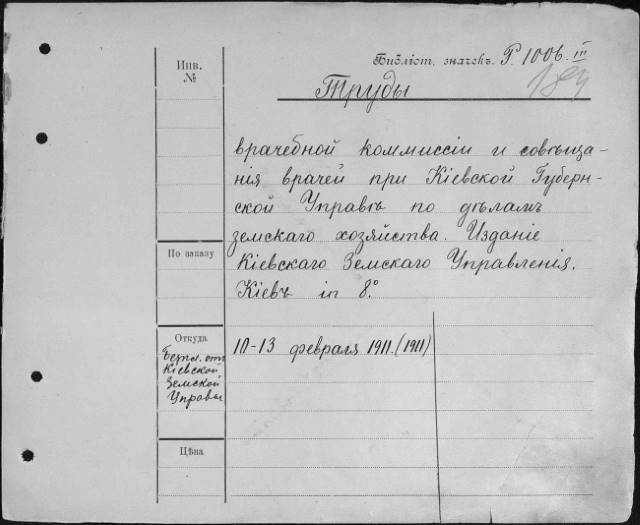 Библіот. значекъ. Р. 1006. III
Инв.
№
Труды
врачебной коммиссіи и совѣща-
нія врачей при Кіевской Губерн-
ской Управѣ по дѣламъ
земскаго хозяйства. Изданіе
По заказу
Кіевскаго Земскаго Управленія.
Кіевъ in 8.°
Откуда
10-13 февраля 1911. (1911)
Безпл. отъ
Кіевской
Земской
Управы
Цѣна